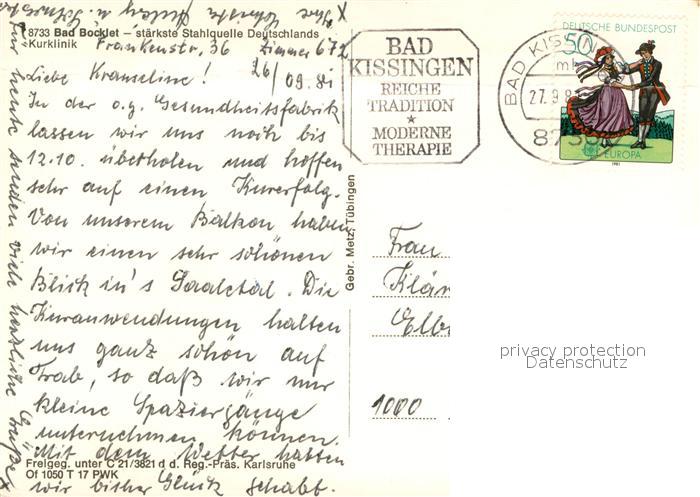 8733 Bad Bocklet – stärkste Stahlquelle Deutschlands
Kurklinik
Frankenstr. 36 Zimmer 672
26/09.81
Liebe Kranseline!
In der o.g. Gesundheitsfabrik
lassen wir uns noch bis
12.10. überholen und hoffen
sehr auf einen Kurerfolg.
Von unserem Balkon haben
wir einen sehr schönen
Blick in's Saaletal. Die
Kuranwendungen halten
uns ganz schön auf
Trab, so daß wir nur
kleine Spaziergänge
unternehmen können.
Mit dem Wetter hatten
wir bisher Glück gehabt.
Für heute senden viele herzliche Grüße
Freigeg. unter C 21/3821 d d. Reg.-Präs. Karlsruhe
Of 1050 T 17 PWK
Gebr. Metz, Tübingen
BAD
KISSINGEN
REICHE
TRADITION
★
MODERNE
THERAPIE
BAD KISSIN
mb
27.9.8
8730
DEUTSCHE BUNDESPOST
50
EUROPA
1981
Frau
Klär
Elb
1000
privacy protection
Datenschutz